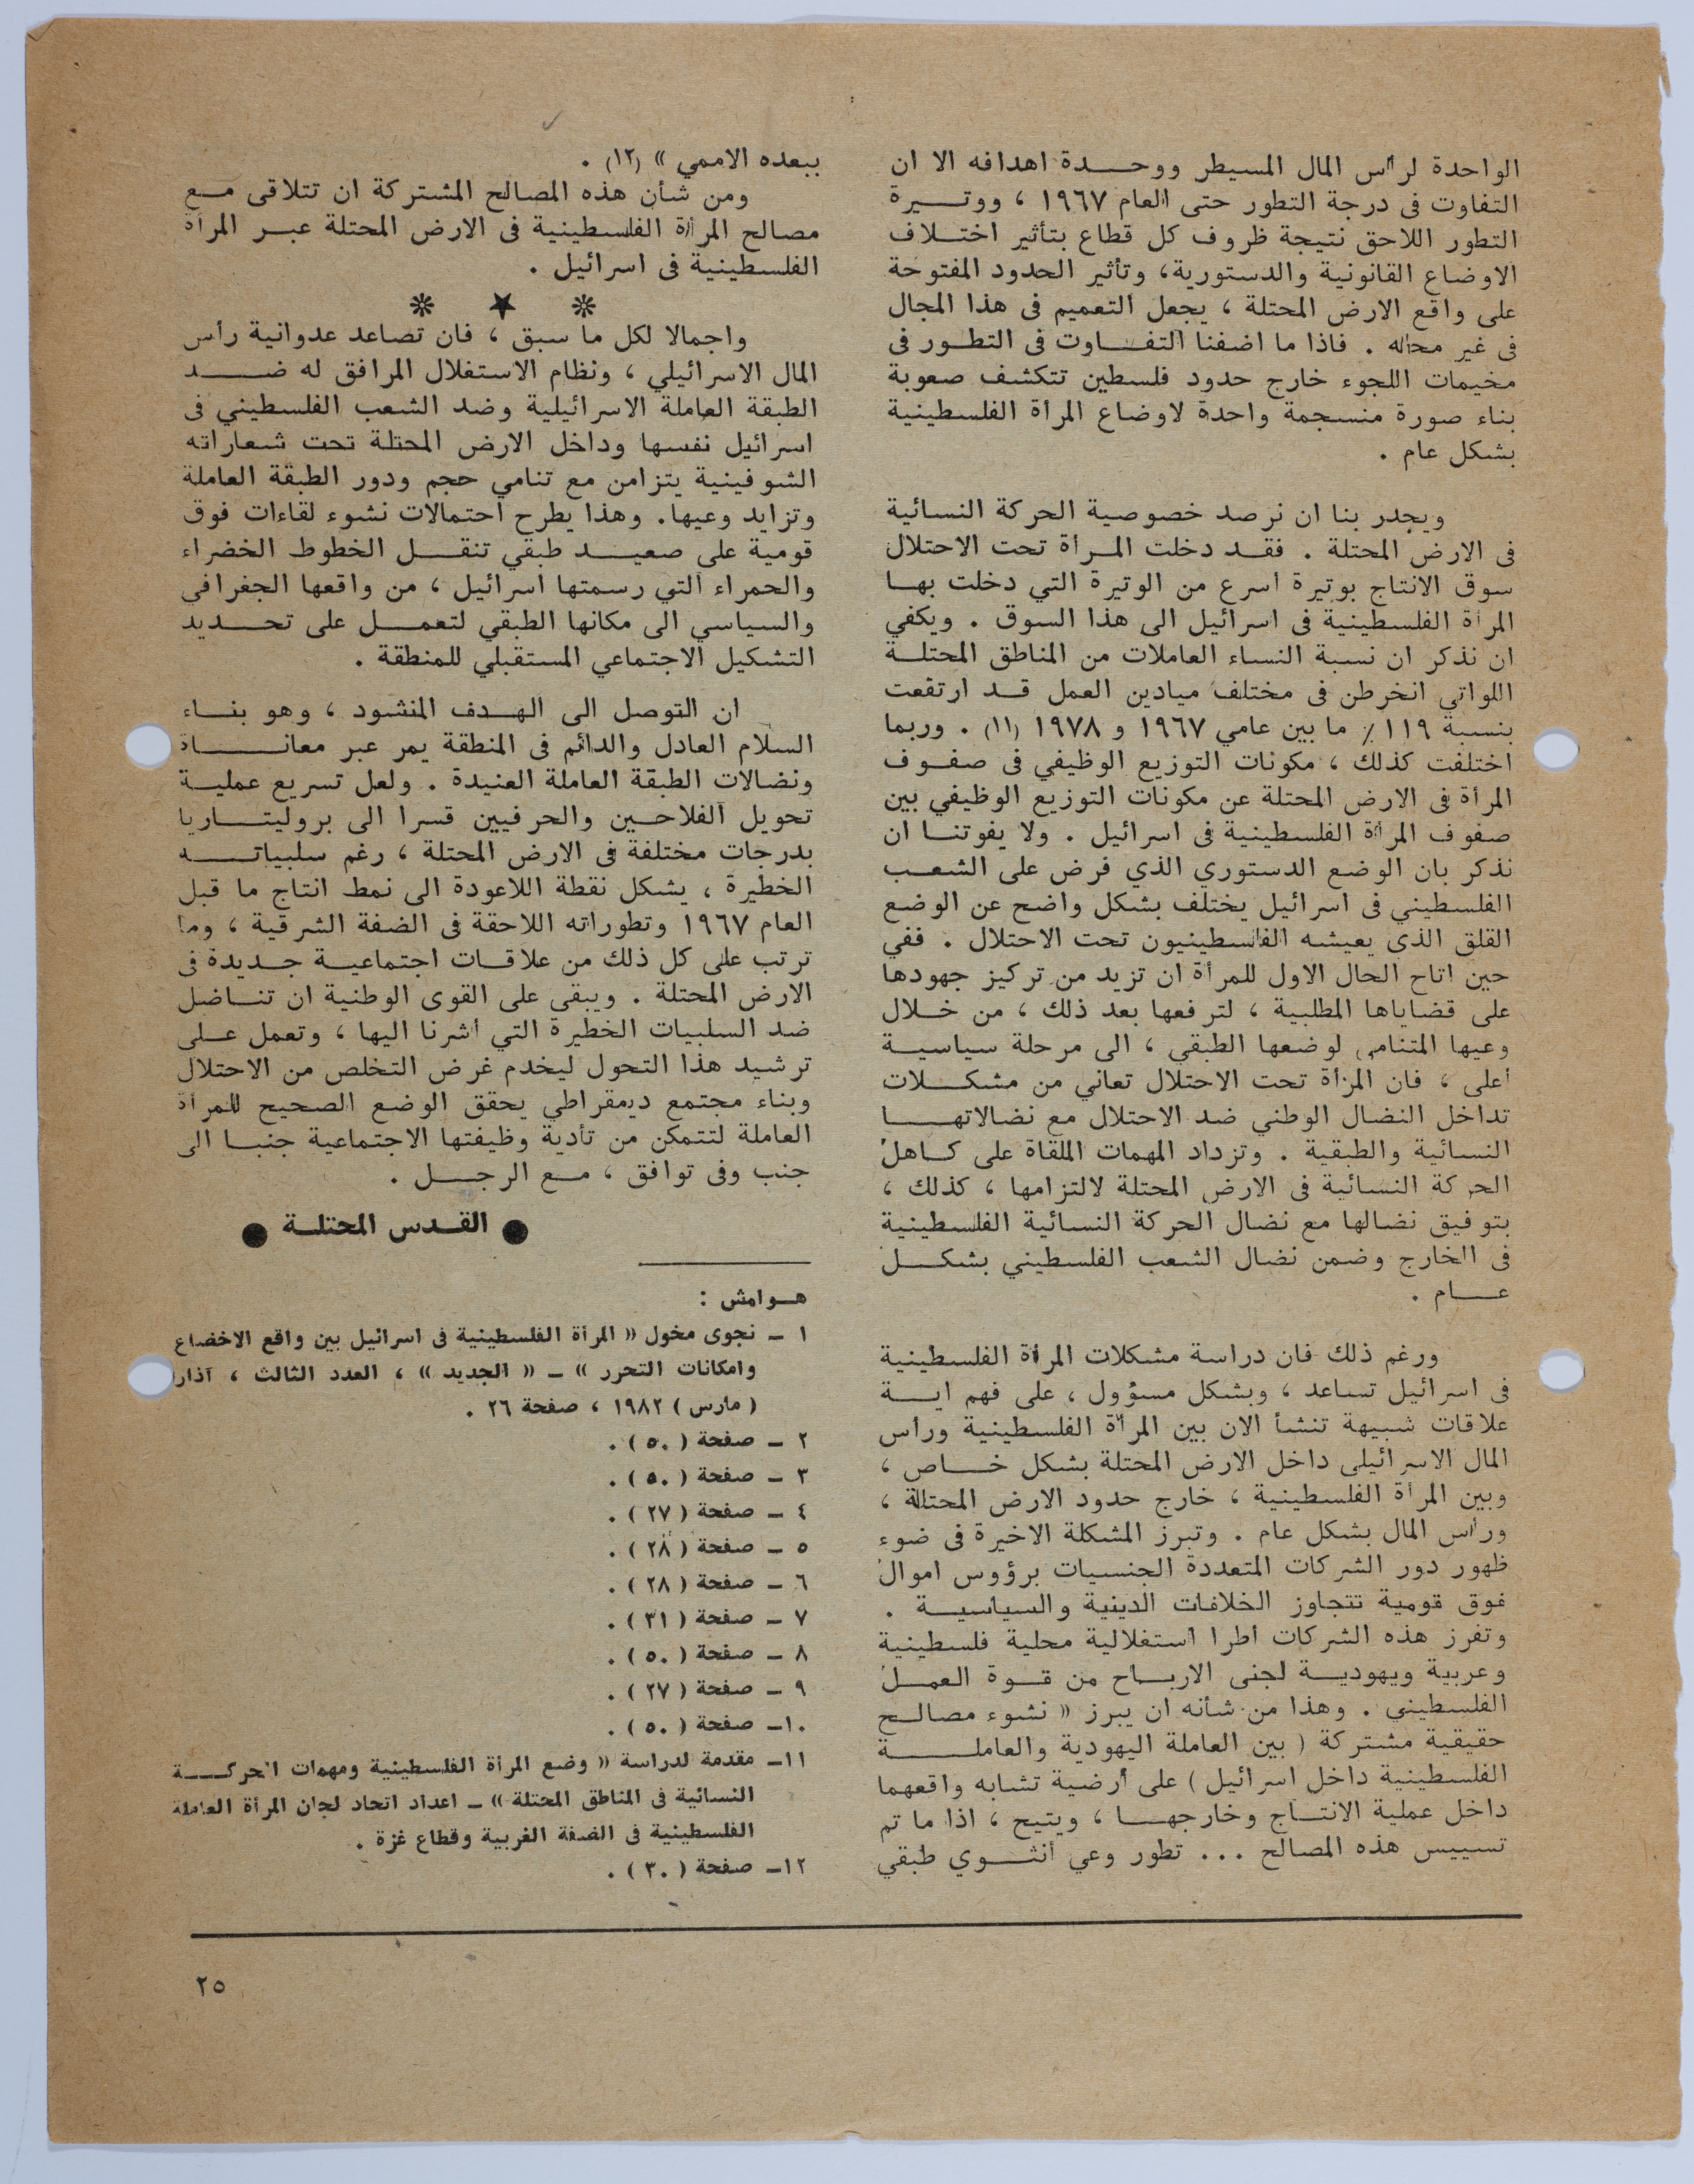 الواحدة لرأس المال المسيطر ووحدة اهدافه الا ان
التفاوت فى درجة التطور حتى العام ١٩٦٧ ، ووتيرة
التطور اللاحق نتيجة ظروف كل قطاع بتأثير اختلاف
الاوضاع القانونية والدستورية، وتأثير الحدود المفتوحة
على واقع الارض المحتلة ، يجعل التعميم فى هذا المجال
فى غير محله . فاذا ما اضفنا التفاوت فى التطور فى
مخيمات اللجوء خارج حدود فلسطين تتكشف صعوبة
بناء صورة منسجمة واحدة لاوضاع المرأة الفلسطينية
بشكل عام .
ويجدر بنا ان نرصد خصوصية الحركة النسائية
فى الارض المحتلة . فقد دخلت المرأة تحت الاحتلال
سوق الانتاج بوتيرة اسرع من الوتيرة التي دخلت بها
المرأة الفلسطينية فى اسرائيل الى هذا السوق . ويكفي
ان نذكر ان نسبة النساء العاملات من المناطق المحتلة
اللواتي انخرطن فى مختلف ميادين العمل قد ارتفعت
بنسبة ١١٩ ٪ ما بين عامي ١٩٦٧ و ١٩٧٨ (١١) . وربما
اختلفت كذلك ، مكونات التوزيع الوظيفي فى صفوف
المرأة فى الارض المحتلة عن مكونات التوزيع الوظيفي بين
صفوف المرأة الفلسطينية فى اسرائيل . ولا يفوتنا ان
نذكر بان الوضع الدستوري الذي فرض على الشعب
الفلسطيني فى اسرائيل يختلف بشكل واضح عن الوضع
القلق الذي يعيشه الفلسطينيون تحت الاحتلال . ففي
حين اتاح الحال الاول للمرأة ان تزيد من تركيز جهودها
على قضاياها المطلبية ، لترفعها بعد ذلك ، من خلال
وعيها المتنامي لوضعها الطبقي ، الى مرحلة سياسية
أعلى ، فان المرأة تحت الاحتلال تعاني من مشكلات
تداخل النضال الوطني ضد الاحتلال مع نضالاتها
النسائية والطبقية . وتزداد المهمات الملقاة على كاهل
الحركة النسائية فى الارض المحتلة لالتزامها ، كذلك ،
بتوفيق نضالها مع نضال الحركة النسائية الفلسطينية
فى الخارج وضمن نضال الشعب الفلسطيني بشكل
عام .
ورغم ذلك فان دراسة مشكلات المرأة الفلسطينية
فى اسرائيل تساعد ، وبشكل مسؤول ، على فهم اية
علاقات شبيهة تنشأ الان بين المرأة الفلسطينية ورأس
المال الاسرائيلي داخل الارض المحتلة بشكل خاص ،
وبين المرأة الفلسطينية ، خارج حدود الارض المحتلة ،
ورأس المال بشكل عام . وتبرز المشكلة الاخيرة فى ضوء
ظهور دور الشركات المتعددة الجنسيات برؤوس اموال
فوق قومية تتجاوز الخلافات الدينية والسياسية .
وتفرز هذه الشركات أطرا استغلالية محلية فلسطينية
وعربية ويهودية لجنى الارباح من قوة العمل
الفلسطيني . وهذا من شأنه ان يبرز « نشوء مصالح
حقيقية مشتركة ( بين العاملة اليهودية والعاملة
الفلسطينية داخل اسرائيل ) على أرضية تشابه واقعهما
داخل عملية الانتاج وخارجها ، ويتيح ، اذا ما تم
تسييس هذه المصالح ... تطور وعي أنثوي طبقي
ببعده الاممي » (١٢) .
ومن شأن هذه المصالح المشتركة ان تتلاقى مع
مصالح المرأة الفلسطينية فى الارض المحتلة عبر المرأة
الفلسطينية فى اسرائيل .
واجمالا لكل ما سبق ، فان تصاعد عدوانية رأس
المال الاسرائيلي ، ونظام الاستغلال المرافق له ضد
الطبقة العاملة الاسرائيلية وضد الشعب الفلسطيني فى
اسرائيل نفسها وداخل الارض المحتلة تحت شعاراته
الشوفينية يتزامن مع تنامي حجم ودور الطبقة العاملة
وتزايد وعيها. وهذا يطرح احتمالات نشوء لقاءات فوق
قومية على صعيد طبقي تنقل الخطوط الخضراء
والحمراء التي رسمتها اسرائيل ، من واقعها الجغرافي
والسياسي الى مكانها الطبقي لتعمل على تحديد
التشكيل الاجتماعي المستقبلي للمنطقة .
ان التوصل الى الهدف المنشود ، وهو بناء
السلام العادل والدائم فى المنطقة يمر عبر معاناة
ونضالات الطبقة العاملة العنيدة . ولعل تسريع عملية
تحويل الفلاحين والحرفيين قسرا الى بروليتاريا
بدرجات مختلفة فى الارض المحتلة ، رغم سلبياته
الخطيرة ، يشكل نقطة اللاعودة الى نمط انتاج ما قبل
العام ١٩٦٧ وتطوراته اللاحقة فى الضفة الشرقية ، وما
ترتب على كل ذلك من علاقات اجتماعية جديدة فى
الارض المحتلة . ويبقى على القوى الوطنية ان تناضل
ضد السلبيات الخطيرة التي أشرنا اليها ، وتعمل على
ترشيد هذا التحول ليخدم غرض التخلص من الاحتلال
وبناء مجتمع ديمقراطي يحقق الوضع الصحيح للمرأة
العاملة لتتمكن من تأدية وظيفتها الاجتماعية جنبا الى
جنب وفى توافق ، مع الرجل .
● القدس المحتلة ●
هوامش :
١ ـ نجوى مخول « المرأة الفلسطينية فى اسرائيل بين واقع الاخضاع
وامكانات التحرر » ـ « الجديد » ، العدد الثالث ، آذار
( مارس ) ١٩٨٢ ، صفحة ٢٦ .
٢ ـ صفحة ( ٥٠ ) .
٣ ـ صفحة ( ٥٠ ) .
٤ ـ صفحة ( ٢٧ ) .
٥ ـ صفحة ( ٢٨ ) .
٦ ـ صفحة ( ٢٨ ) .
٧ ـ صفحة ( ٣١ ) .
٨ ـ صفحة ( ٥٠ ) .
٩ ـ صفحة ( ٢٧ ) .
١٠ـ صفحة ( ٥٠ ) .
١١ـ مقدمة لدراسة « وضع المرأة الفلسطينية ومهمات الحركة
النسائية فى المناطق المحتلة » ـ اعداد اتحاد لجان المرأة العاملة
الفلسطينية فى الضفة الغربية وقطاع غزة .
١٢ـ صفحة ( ٣٠ ) .
٢٥